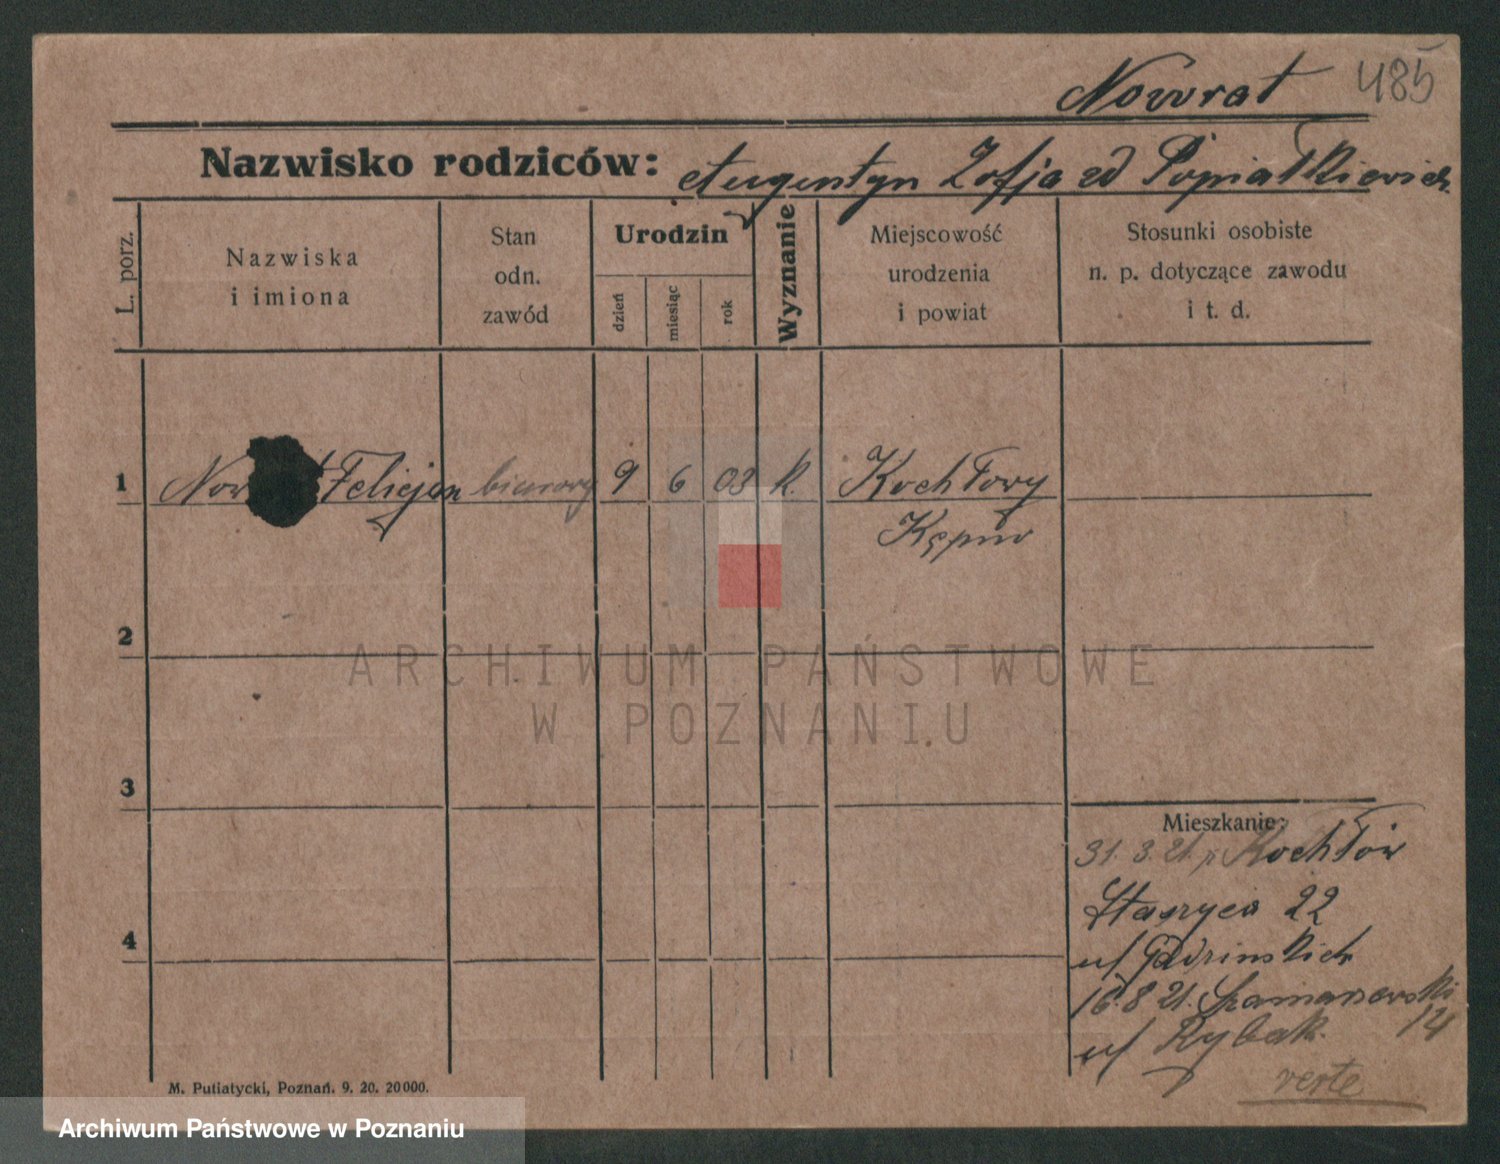 Nowrat 485
Nazwisko rodziców: Augustyn Zofja zd Popiałkiewicz
L. porz.
Nazwiska
i imiona
Stan
odn.
zawód
Urodzin
dzień
miesiąc
rok
Wyznanie
Miejscowość
urodzenia
i powiat
Stosunki osobiste
n. p. dotyczące zawodu
i t. d.
1 Now t Felicjan biurowy 9 6 03 k. Kochłowy
Kępno
2
ARCHIWUM PAŃSTWOWE
W POZNANIU
3
Mieszkanie:
31. 3. 21. Kochłów
22
4
u/
16. 8 21. Szamarzewski
14
u/ Rybak.
verte
M. Putiatycki, Poznań. 9. 20. 20000.
Archiwum Państwowe w Poznaniu